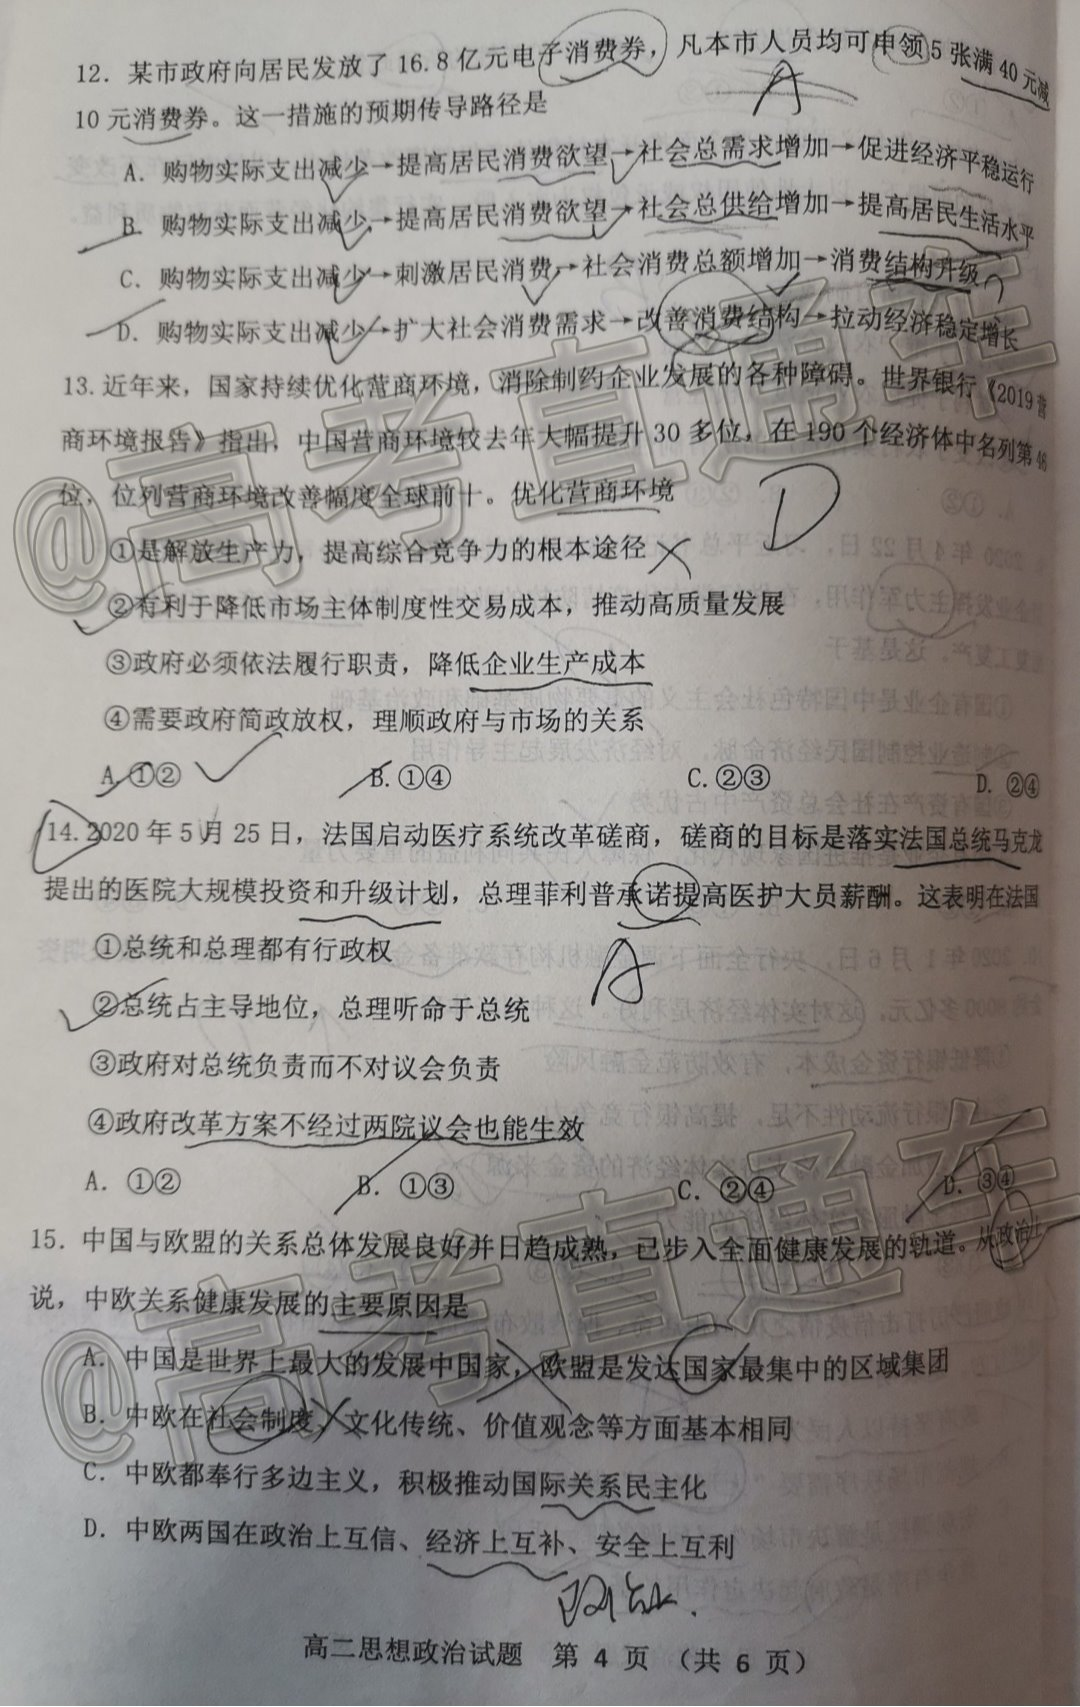 12. 某市政府向居民发放了 16.8 亿元电子消费券，凡本市人员均可申领 5 张满 40 元减
10 元消费券。这一措施的预期传导路径是
A
A. 购物实际支出减少→提高居民消费欲望→社会总需求增加→促进经济平稳运行
B. 购物实际支出减少→提高居民消费欲望→社会总供给增加→提高居民生活水平
C. 购物实际支出减少→刺激居民消费→社会消费总额增加→消费结构升级
D. 购物实际支出减少→扩大社会消费需求→改善消费结构→拉动经济稳定增长
13. 近年来，国家持续优化营商环境，消除制约企业发展的各种障碍。世界银行《2019 营
商环境报告》指出，中国营商环境较去年大幅提升 30 多位，在 190 个经济体中名列第 46
位，位列营商环境改善幅度全球前十。优化营商环境
D
①是解放生产力，提高综合竞争力的根本途径
②有利于降低市场主体制度性交易成本，推动高质量发展
③政府必须依法履行职责，降低企业生产成本
④需要政府简政放权，理顺政府与市场的关系
A. ①② B. ①④ C. ②③ D. ②④
14. 2020 年 5 月 25 日，法国启动医疗系统改革磋商，磋商的目标是落实法国总统马克龙
提出的医院大规模投资和升级计划，总理菲利普承诺提高医护大员薪酬。这表明在法国
①总统和总理都有行政权
A
②总统占主导地位，总理听命于总统
③政府对总统负责而不对议会负责
④政府改革方案不经过两院议会也能生效
A. ①② B. ①③ C. ②④ D. ③④
15. 中国与欧盟的关系总体发展良好并日趋成熟，已步入全面健康发展的轨道。从政治上
说，中欧关系健康发展的主要原因是
A. 中国是世界上最大的发展中国家，欧盟是发达国家最集中的区域集团
B. 中欧在社会制度、文化传统、价值观念等方面基本相同
C. 中欧都奉行多边主义，积极推动国际关系民主化
D. 中欧两国在政治上互信、经济上互补、安全上互利
政治.
高二思想政治试题 第 4 页 （共 6 页）
@高考直通车
@高考直通车